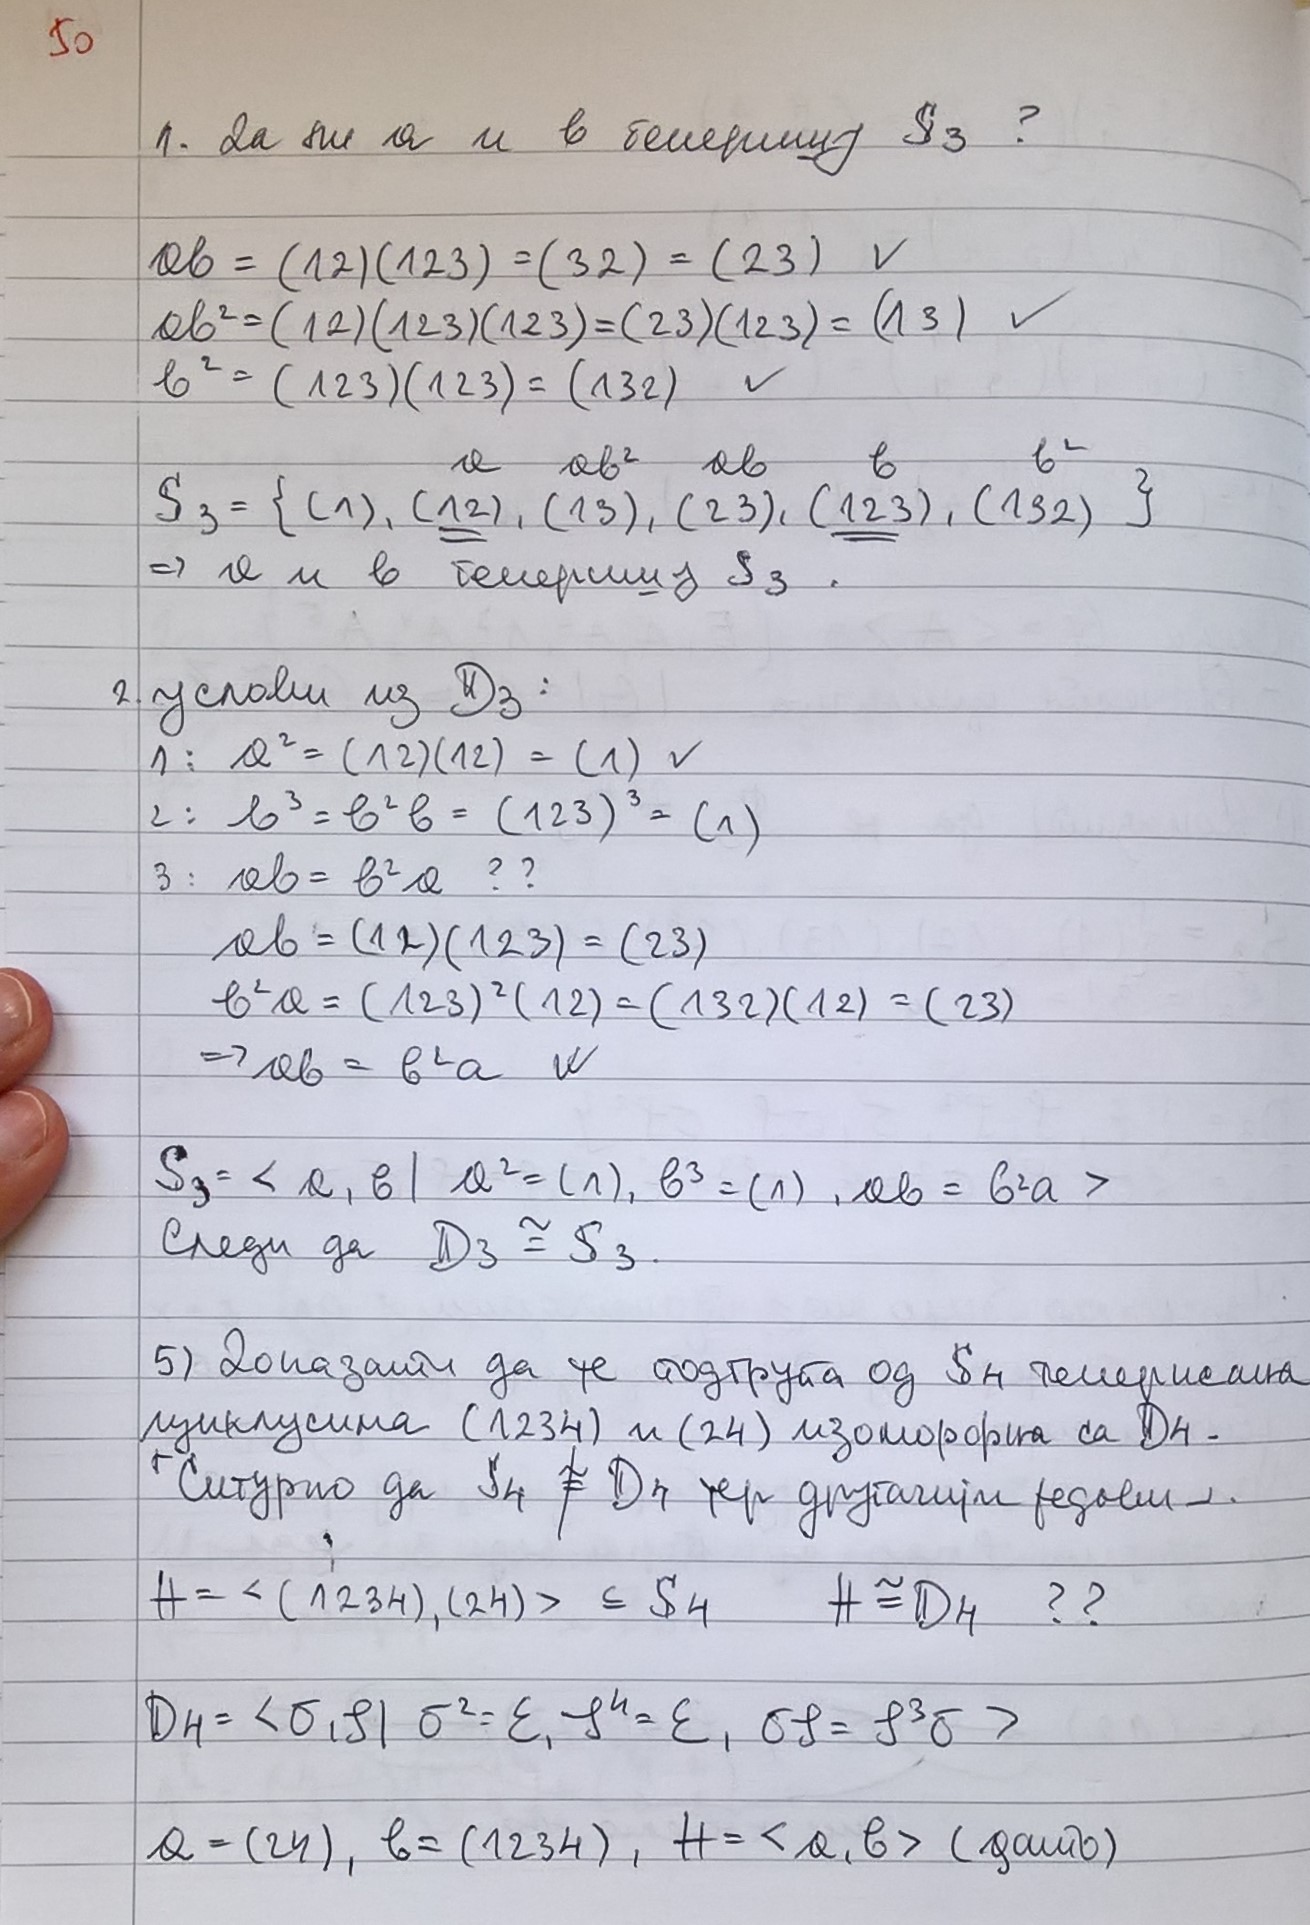 50
1. Да ли a и b генеришу S₃ ?
ab = (12)(123) = (32) = (23) ✓
ab² = (12)(123)(123) = (23)(123) = (13) ✓
b² = (123)(123) = (132) ✓
a ab² ab b b²
S₃ = { (1), (12), (13), (23), (123), (132) }
⇒ a и b генеришу S₃ .
2. услови из D₃ :
1 : a² = (12)(12) = (1) ✓
2 : b³ = b²b = (123)³ = (1)
3 : ab = b²a ??
ab = (12)(123) = (23)
b²a = (123)²(12) = (132)(12) = (23)
⇒ ab = b²a ✓
S₃ = < a, b | a² = (1), b³ = (1), ab = b²a >
Следи да D₃ ≅ S₃.
5) Доказати да је подгрупа од S₄ генерисана
циклусима (1234) и (24) изоморфна са D₄.
⌈Сигурно да S₄ ≇ D₄ јер другачији редови⌋.
H = < (1234), (24) > ⊆ S₄ H ≅ D₄ ??
D₄ = < σ, ρ | σ² = ε, ρ⁴ = ε, σρ = ρ³σ >
a = (24), b = (1234), H = < a, b > (дато)